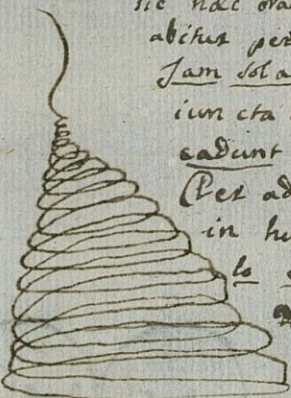 sic haec ora
abitus per
Jam sol a
iuncta
cadunt
Per ad
in hu
lo